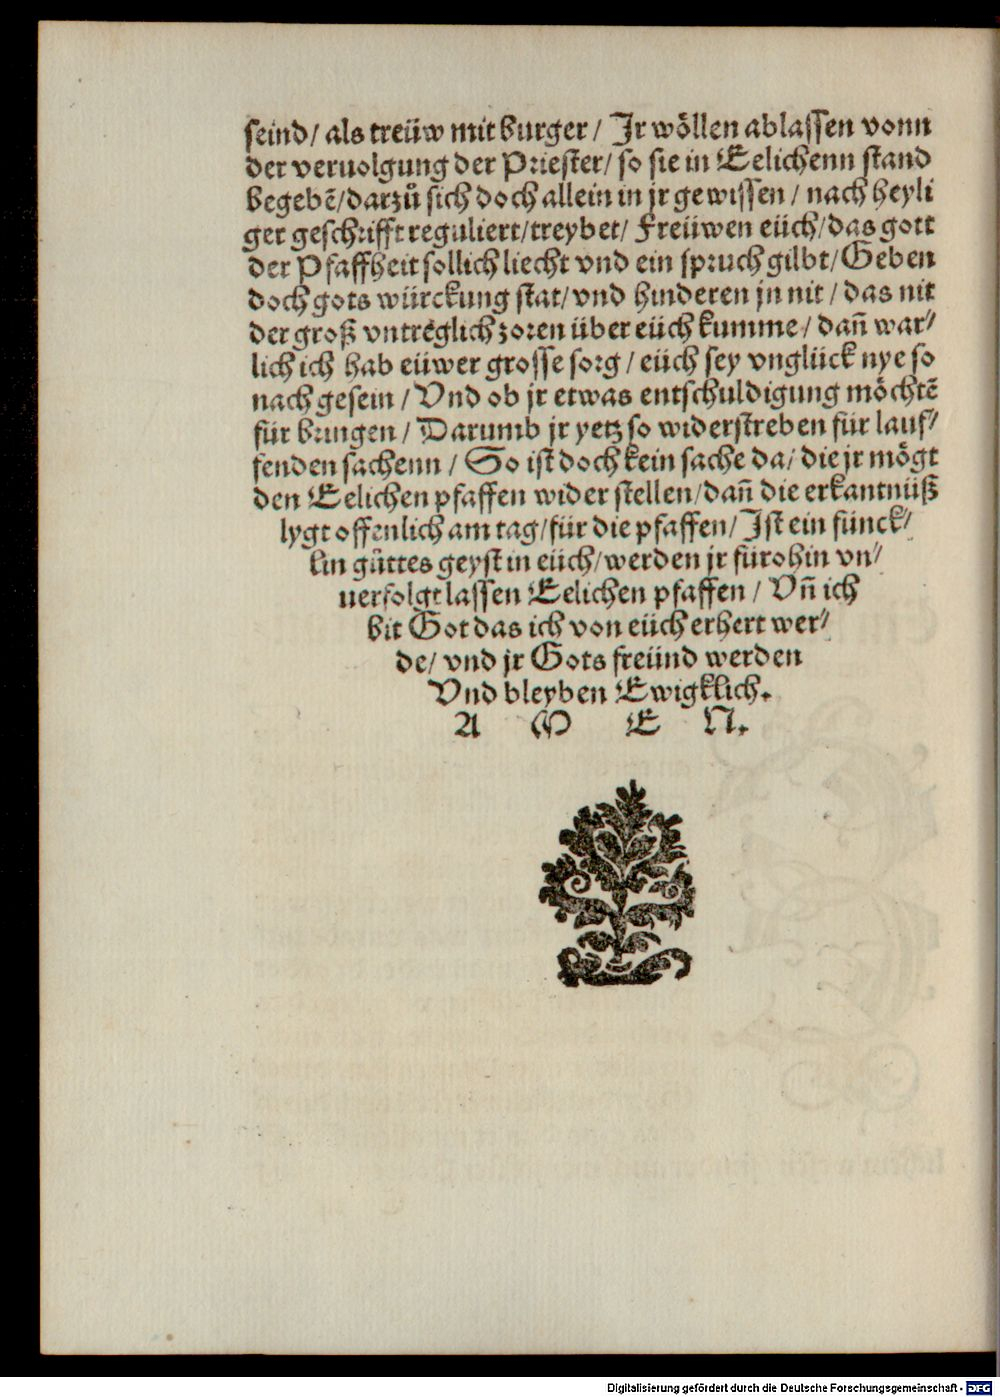 seind/ als treüw mit burger/ Jr wöllen ablassen vonn
der veruolgung der Priester/ so sie in Eelichenn stand
begebē/darzů sich doch allein in jr gewissen / nach heyli
ger geschrifft reguliert/treybet/ Freüwen eüch/das gott
der Pfaffheit sollich liecht vnd ein spruch gilbt/Geben
doch gots würckung stat/vnd hinderen jn nit / das nit
der groß vntreglich zoren über eüch kumme/ dañ war/
lich ich hab eüwer grosse sorg / eüch sey vnglück nye so
nach gesein / Vnd ob jr etwas entschuldigung möchtē
für bringen / Darumb jr yetz so widerstreben für lauf/
fenden sachenn / So ist doch kein sache da/ die jr mögt
den Eelichen pfaffen wider stellen/dañ die erkantnüß
lygt offenlich am tag/für die pfaffen/ Jst ein fünck/
lin gůttes geyst in eüch/werden jr fürohin vn/
uerfolgt lassen Eelichen pfaffen / Vñ ich
bit Got das ich von eüch erhert wer/
de/ vnd jr Gots freünd werden
Vnd bleyben Ewigklich.
A M E N.
Digitalisierung gefördert durch die Deutsche Forschungsgemeinschaft - DFG